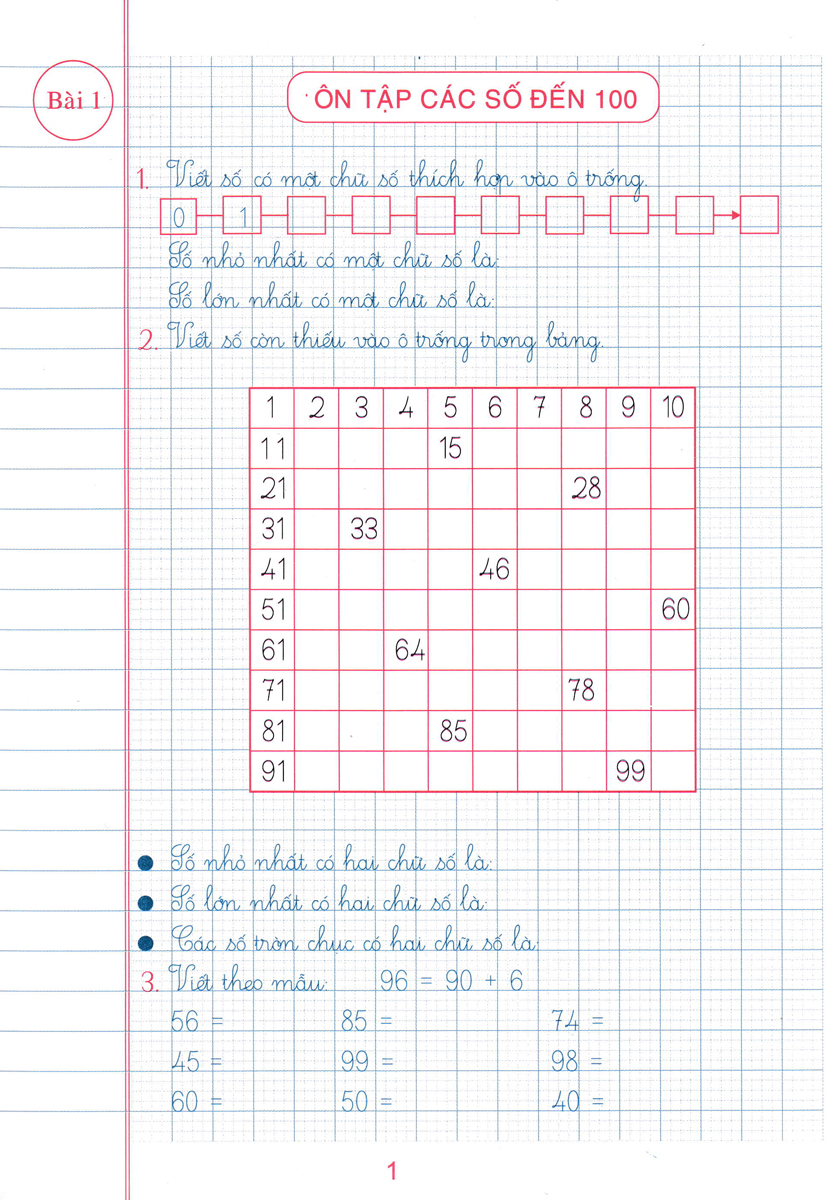 Bài 1
ÔN TẬP CÁC SỐ ĐẾN 100
1. Viết số có một chữ số thích hợp vào ô trống.
0 1
Số nhỏ nhất có một chữ số là:
Số lớn nhất có một chữ số là:
2. Viết số còn thiếu vào ô trống trong bảng.
1 2 3 4 5 6 7 8 9 10
11 15
21 28
31 33
41 46
51 60
61 64
71 78
81 85
91 99
Số nhỏ nhất có hai chữ số là:
Số lớn nhất có hai chữ số là:
Các số tròn chục có hai chữ số là:
3. Viết theo mẫu: 96 = 90 + 6
56 = 85 = 74 =
45 = 99 = 98 =
60 = 50 = 40 =
1